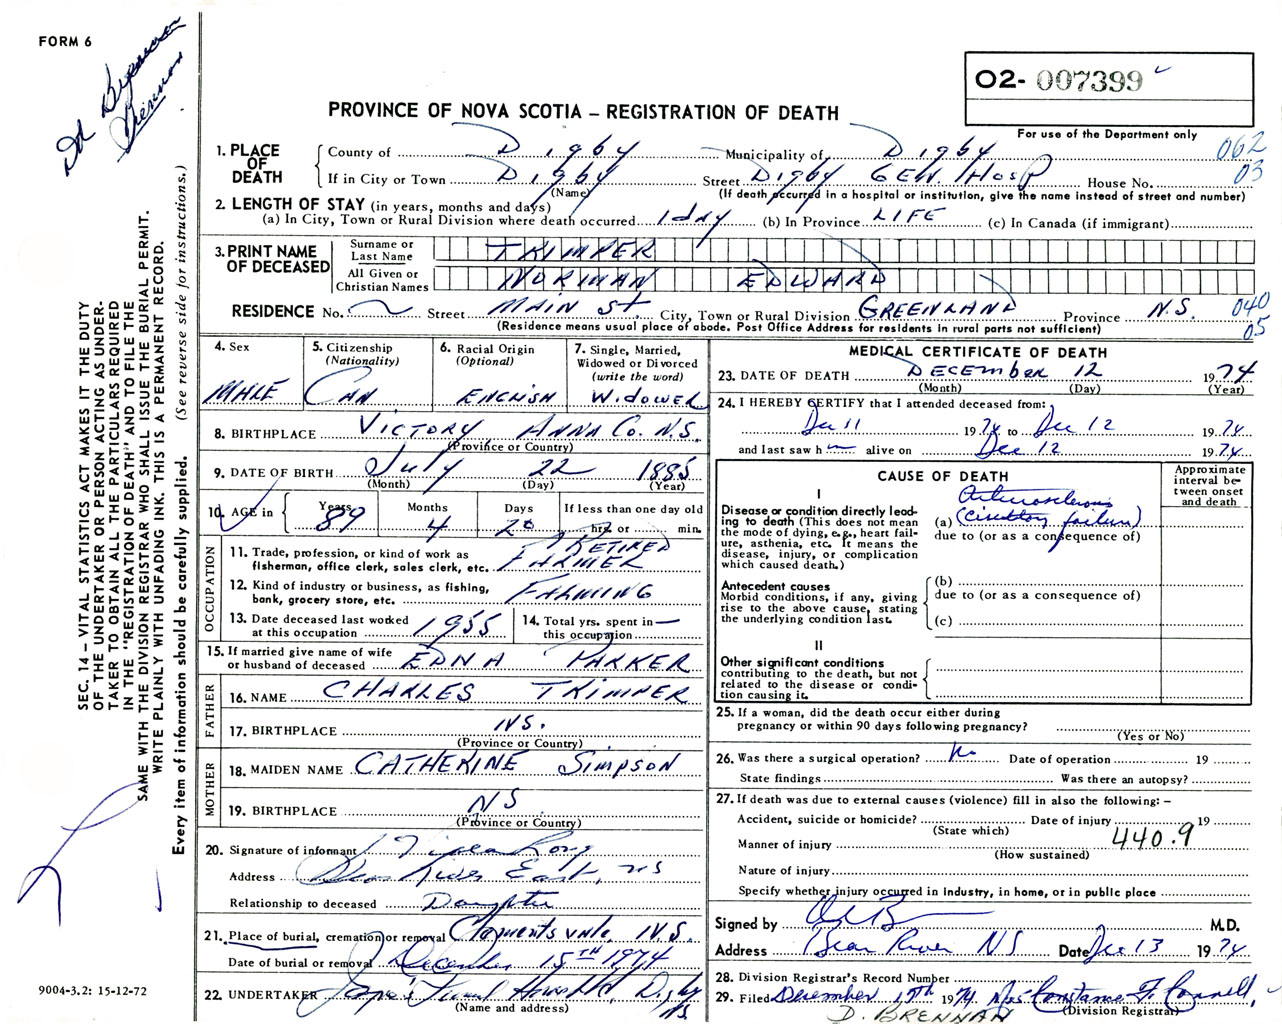 FORM 6
Dd Brennan
Brennan
O2- 007399
PROVINCE OF NOVA SCOTIA – REGISTRATION OF DEATH
For use of the Department only
1. PLACE OF DEATH
County of Digby Municipality of Digby 062
If in City or Town Digby Street Digby GEN. HOSP House No. 03
(Name) (If death occurred in a hospital or institution, give the name instead of street and number)
2. LENGTH OF STAY (in years, months and days)
(a) In City, Town or Rural Division where death occurred 1 day (b) In Province LIFE (c) In Canada (if immigrant)
3. PRINT NAME OF DECEASED
Surname or Last Name TRIMPER
All Given or Christian Names NORMAN EDWARD
RESIDENCE No. Street MAIN St. City, Town or Rural Division GREENLAND Province N.S. 040
(Residence means usual place of abode. Post Office Address for residents in rural parts not sufficient) 05
4. Sex MALE
5. Citizenship (Nationality) CAN
6. Racial Origin (Optional) ENGLISH
7. Single, Married, Widowed or Divorced (write the word) WIDOWER
8. BIRTHPLACE VICTORY ANNA Co. N.S.
(Province or Country)
9. DATE OF BIRTH July 22 1885
(Month) (Day) (Year)
10. AGE in Years 89 Months 4 Days 20 If less than one day old hrs or min.
OCCUPATION
11. Trade, profession, or kind of work as fisherman, office clerk, sales clerk, etc. RETIRED FARMER
12. Kind of industry or business, as fishing, bank, grocery store, etc. FARMING
13. Date deceased last worked at this occupation 1955
14. Total yrs. spent in this occupation —
15. If married give name of wife or husband of deceased EDNA PARKER
FATHER
16. NAME CHARLES TRIMPER
17. BIRTHPLACE N.S.
(Province or Country)
MOTHER
18. MAIDEN NAME CATHERINE SIMPSON
19. BIRTHPLACE NS
(Province or Country)
20. Signature of informant Long
Address Bear River East, NS
Relationship to deceased Daughter
21. Place of burial, cremation or removal Clementsvale, N.S.
Date of burial or removal December 15TH 1974
22. UNDERTAKER Funeral Home Ltd, Digby NS.
(Name and address)
MEDICAL CERTIFICATE OF DEATH
23. DATE OF DEATH DECEMBER 12 1974
(Month) (Day) (Year)
24. I HEREBY CERTIFY that I attended deceased from:
Dec 11 1974 to Dec 12 1974
and last saw h m alive on Dec 12 1974
CAUSE OF DEATH
Approximate interval between onset and death
I
Disease or condition directly leading to death (This does not mean the mode of dying, e.g., heart failure, asthenia, etc. It means the disease, injury, or complication which caused death.)
Arteriosclerosis
(a) (circulatory failure)
due to (or as a consequence of)
Antecedent causes
Morbid conditions, if any, giving rise to the above cause, stating the underlying condition last.
(b)
due to (or as a consequence of)
(c)
II
Other significant conditions contributing to the death, but not related to the disease or condition causing it.
25. If a woman, did the death occur either during pregnancy or within 90 days following pregnancy?
(Yes or No)
26. Was there a surgical operation? No Date of operation 19
State findings Was there an autopsy?
27. If death was due to external causes (violence) fill in also the following: –
Accident, suicide or homicide? Date of injury 19
(State which)
Manner of injury 440.9
(How sustained)
Nature of injury
Specify whether injury occurred in industry, in home, or in public place
Signed by M.D.
Address Bear River NS Date Dec 13 1974
28. Division Registrar's Record Number
29. Filed December 17th 1974 Mrs Constance F. Connell,
(Division Registrar)
D. BRENNAN
SEC. 14 – VITAL STATISTICS ACT MAKES IT THE DUTY
OF THE UNDERTAKER OR PERSON ACTING AS UNDER-
TAKER TO OBTAIN ALL THE PARTICULARS REQUIRED
IN THE "REGISTRATION OF DEATH" AND TO FILE THE
SAME WITH THE DIVISION REGISTRAR WHO SHALL ISSUE THE BURIAL PERMIT.
WRITE PLAINLY WITH UNFADING INK. THIS IS A PERMANENT RECORD.
Every item of information should be carefully supplied. (See reverse side for instructions.)
9004-3.2: 15-12-72